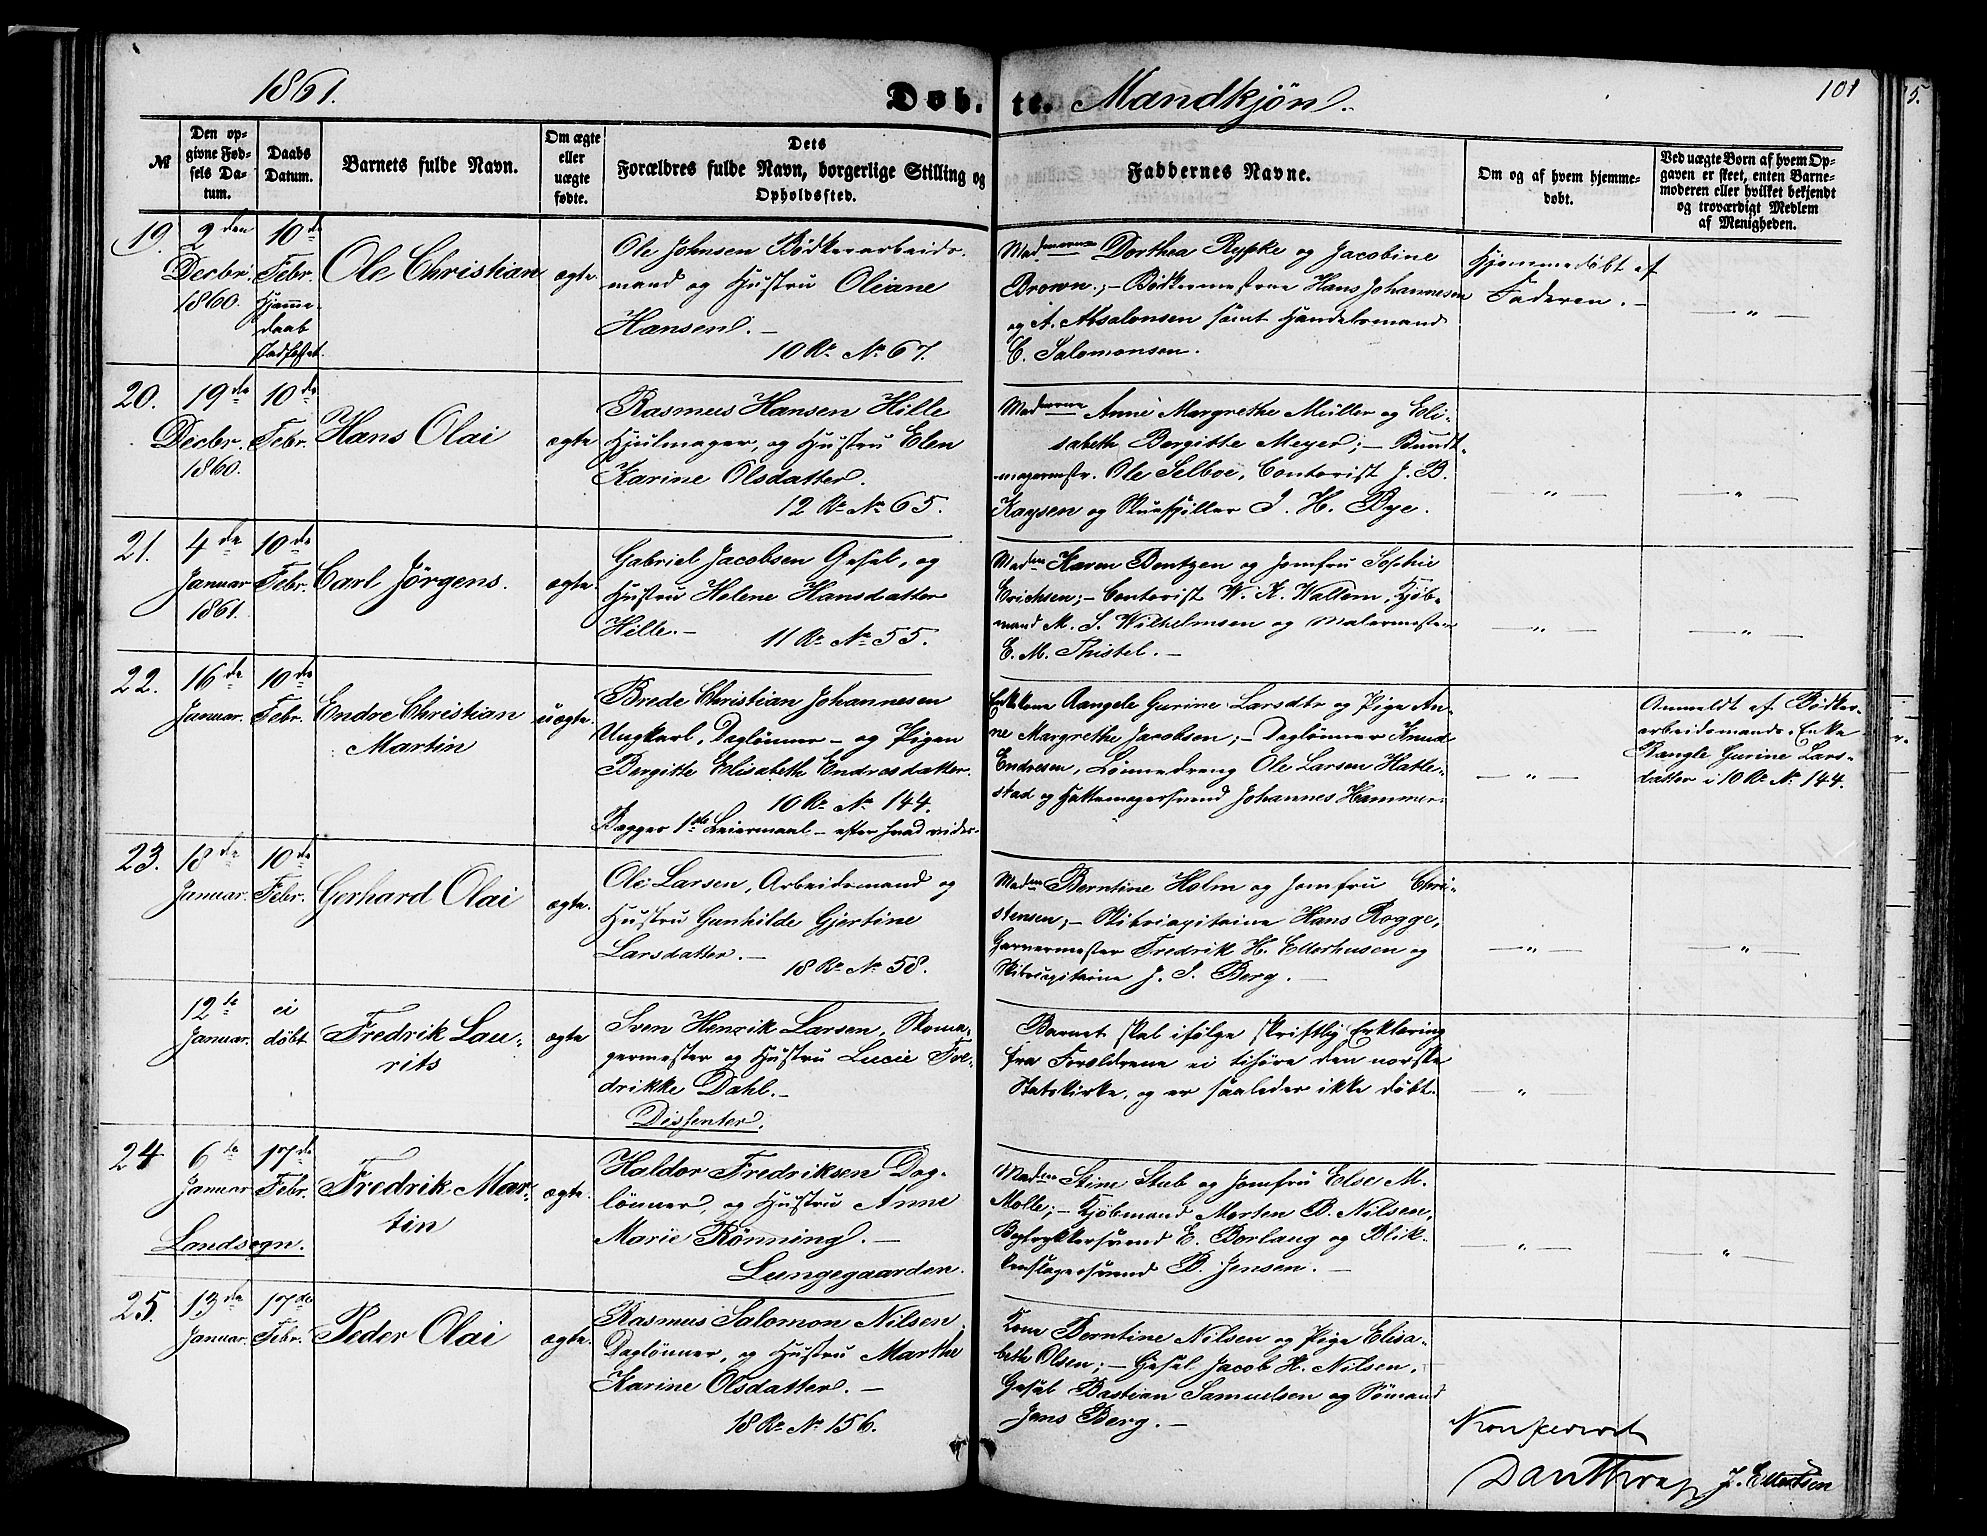 1861.
Døb-
te. Mandkjøn.
101
№
Den op-
givne Fød-
sels Da-
tum.
Daabs
Datum.
Barnets fulde Navn.
Om ægte
eller
uægte
fødte.
Dets
Forældres fulde Navn, borgerlige Stilling og
Opholdssted.
Faddernes Navne.
Om og af hvem hjemme-
døbt.
Ved uægte Børn af hvem Op-
gaven er skeet, enten Barne-
moderen eller hvilket bekjendt
og troværdigt Medlem
af Menigheden.
19.
9den
Decbr.
1860.
10de
Febr.
Hjemme-
daab
stadfæstet.
Ole Christian
ægte
Ole Johnsen Bødkerarbeids-
mand og Hustru Oliane
Hansen. -
10 R. № 67.
Madmerne Dorthea Rypke og Jacobine
Brown; - Bødkermestrene Hans Johannesen
og A. Absalonsen samt Handelsmand
C. Salomonsen.
Hjemmedøbt af
Faderen. -
— „ —
20.
19de
Decbr.
1860.
10de
Febr.
Hans Olai
ægte
Rasmus Hansen Hille
Hjulmager, og Hustru Elen
Karine Olsdatter.
12 R. № 65.
Madmerne Anne Margrethe Müller og Eli-
sabeth Bergitte Meyer; - Bundt-
magermstr. Ole Selboe, Contorist J. B.
Kaysen og Skuespiller J. H. Bye.
— „ —
— „ —
21.
4de
Januar
1861.
10de
Febr.
Carl Jörgens.
ægte.
Gabriel Jacobsen Gesel, og
Hustru Helene Hansdatter
Hille. -
11 R. № 55.
Madmn Karen Bentzen og Jomfru Sophie
Erichsen; - Contorist W. K. Wallem, Kjöb-
mand M. S. Wilhelmsen og Malermester
E. M. Thistel. -
— „ —
— „ —
22.
16de
Januar.
10de
Febr.
Endre Christian
Martin
uægte.
Brede Christian Johannesen
Ungkarl, Daglönner - og Pigen
Bergitte Elisabeth Endresdatter.
10 R. № 144.
Begges 1ste Leiermaal - efter hvad vides.
Enkkone Rangele Gurine Larsdtr og Pige An-
ne Margrethe Jacobsen; - Daglönner Knud
Endresen, Lönnedreng Ole Larsen Hatle-
stad og Hattemagersvend Johannes Hammer.
— „ —
Anmeldt af Bødker-
arbeidsmands Enke
Rangle Gurine Lars-
datter i 10 R. № 144.
23.
18de
Januar.
10de
Febr.
Gerhard Olai
ægte.
Ole Larsen, Arbeidsmand og
Hustru Gunhilde Gjertine
Larsdatter. -
18 R. № 58.
Madmn Berntine Holm og Jomfru Chri-
stensen; - Skibscapitaine Hans Rogge,
Garvermester Fredrik H. Ellerhusen og
Skibscapitaine J. S. Berg. -
— „ —
— „ —
12te
Januar.
ei
døbt
Fredrik Lau-
rits
ægte
Sven Henrik Larsen, Skoma-
germester og Hustru Lucie Fre-
drikke Dahl. -
Dissenter.
Barnet skal ifølge skriftlig Erklæring
fra Forældrene ei tilhøre den norske
Statskirke, og er saaledes ikke døbt.
— „
24
6te
Januar
17de
Febr.
Landsogn.
Fredrik Mar-
tin
ægte.
Haldor Fredriksen Dag-
lönner, og Hustru Anne
Marie Rønning. -
Lungegaarden.
Madmn Stine Stub og Jomfru Else M.
Molle; - Kjöbmand Morten B. Nilsen,
Bogtrykkersvend E. Borlaug og Blik-
kenslagersvend B. Jensen. -
— „ —
„
25.
13de
Januar.
17de
Febr.
Peder Olai
ægte.
Rasmus Salomon Nilsen
Daglönner, og Hustru Marthe
Karine Olsdatter. -
18 R. № 156.
Kone Berntine Nilsen og Pige Elisa-
beth Olsen; - Gesel Jacob H. Nilsen,
Gesel Bastian Samuelsen og Sömand
Jens Berg. -
Konfereret
Dan Thrap J. Ellertsen